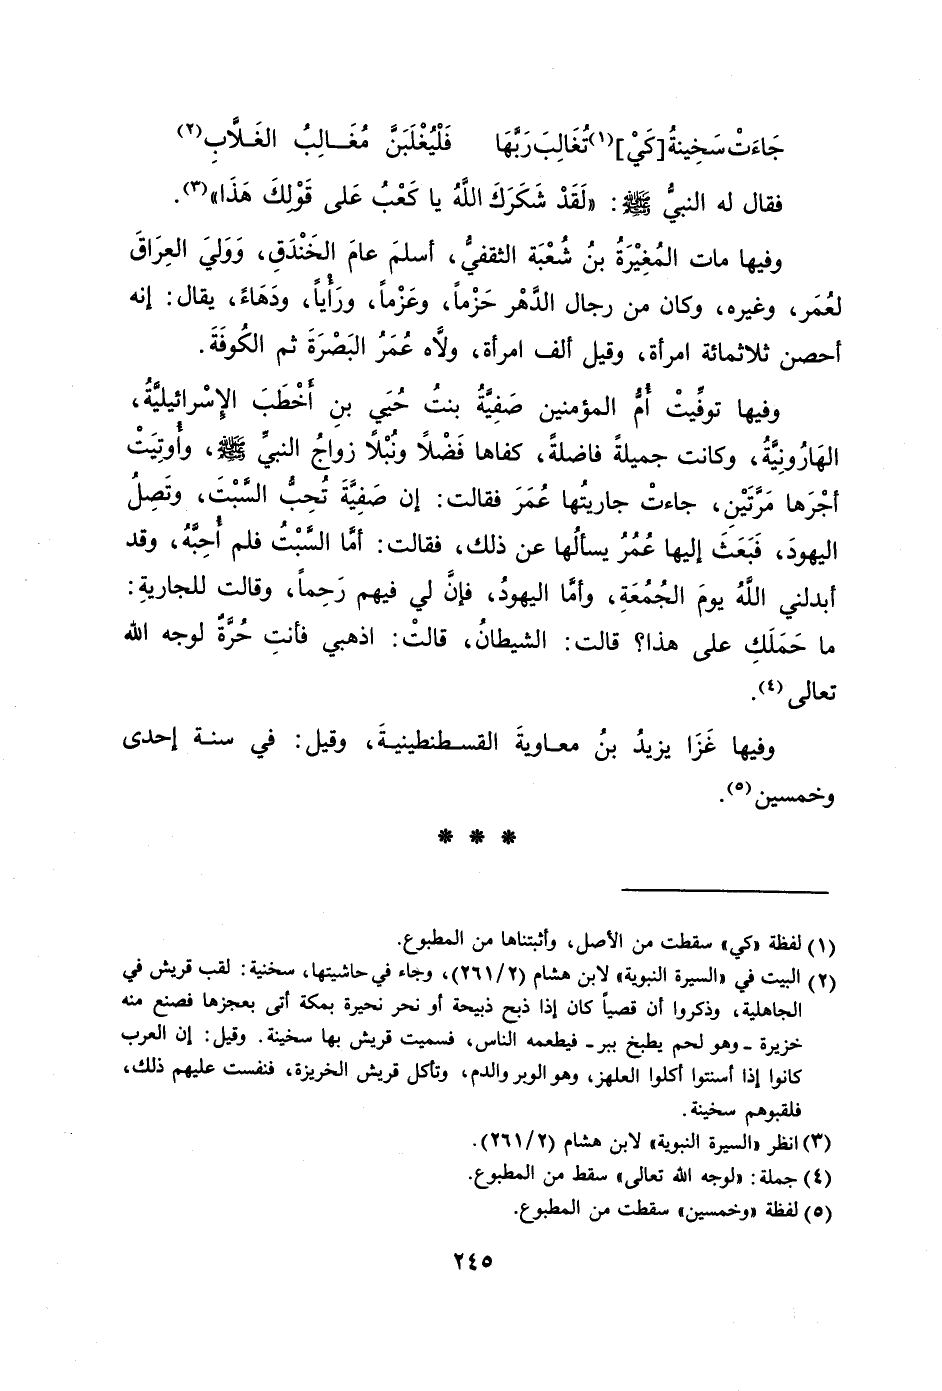 جَاءَتْ سَخِينةُ [كَيْ](١) تُغَالِبَ رَبَّهَا فَلْيُغْلَبَنَّ مُغَـالِبُ الغَـلَّابِ(٢)
فقال له النبيُّ ﷺ: «لَقَدْ شَكَرَكَ اللَّهُ يا كَعْبُ عَلى قَوْلِكَ هَذَا»(٣).
وفيها مات المُغِيْرَةُ بنُ شُعْبَة الثقفيُّ، أسلمَ عامَ الخَنْدَقِ، وَوَليَ العِرَاقَ
لعُمَر، وغيره، وكان من رجال الدَّهْر حَزْماً، وعَزْماً، ورَأْياً، ودَهَاءً، يقال: إنه
أحصن ثلاثمائة امرأة، وقيل ألف امرأة، ولاَّه عُمَرُ البَصْرَةَ ثم الكُوفَةَ.
وفيها توفِّيتْ أُمُّ المؤمنين صَفِيَّةُ بنتُ حُيَي بنِ أَخْطَبَ الإِسْرائيليَّةُ،
الهَارُونِيَّةُ، وكانت جميلةً فاضلةً، كفاها فَضْلاً ونُبْلاً زواجُ النبيِّ ﷺ، وأُوتِيَتْ
أجْرَها مَرَّتَيْنِ، جاءتْ جاريتُها عُمَرَ فقالت: إن صَفِيَّةَ تُحِبُّ السَّبْتَ، وتَصِلُ
اليهودَ، فَبَعَثَ إليها عُمُرُ يسألُها عن ذلك، فقالت: أمَّا السَّبْتُ فلم أُحِبَّهُ، وقد
أبدلني اللَّهُ يومَ الجُمُعَةِ، وأمَّا اليهودُ، فإنَّ لي فيهم رَحِماً، وقالت للجاريةِ:
ما حَمَلَكِ على هذا؟ قالت: الشيطانُ، قالتْ: اذهبي فأنتِ حُرَّةٌ لوجه الله
تعالى(٤).
وفيها غَزَا يزيدُ بنُ معـاويةَ القسـطنطينيـةَ، وقيل: في سنـة إحدى
وخمسين(٥).
* * *
(١) لفظة «كي» سقطت من الأصل، وأثبتناها من المطبوع.
(٢) البيت في «السيرة النبوية» لابن هشام (٢٦١/٢)، وجاء في حاشيتها، سخنية: لقب قريش في
الجاهلية، وذكروا أن قصياً كان إذا ذبح ذبيحة أو نحر نحيرة بمكة أتى بعجزها فصنع منه
خزيرة ـ وهو لحم يطبخ ببر ـ فيطعمه الناس، فسميت قريش بها سخينة. وقيل: إن العرب
كانوا إذا أسنتوا أكلوا العلهز، وهو الوبر والدم، وتأكل قريش الخريزة، فنفست عليهم ذلك،
فلقبوهم سخينة.
(٣) انظر «السيرة النبوية» لابن هشام (٢٦١/٢).
(٤) جملة: «لوجه الله تعالى» سقط من المطبوع.
(٥) لفظة «وخمسين» سقطت من المطبوع.
٢٤٥